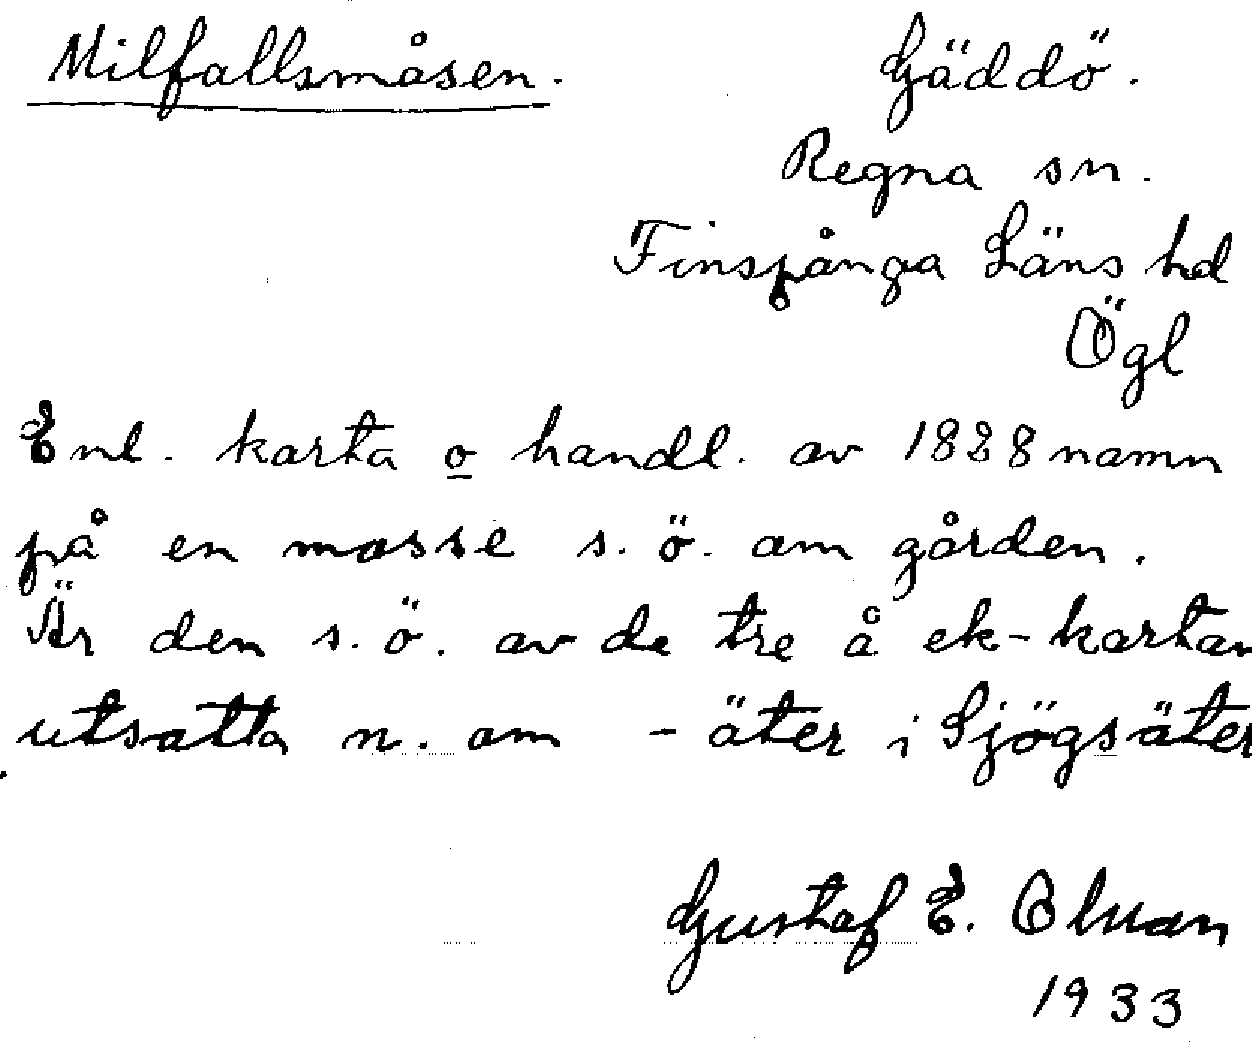 Milfallsmåsen. Gäddö.
Regna sn.
Finspånga Läns hd
Ögl
Enl. karta o handl. av 1828 namn
på en mosse s. ö. om gården.
Är den s. ö. av de tre å ek-kartan
utsatta n. om -äter i Sjögsäter
Gustaf E. Olson
1933